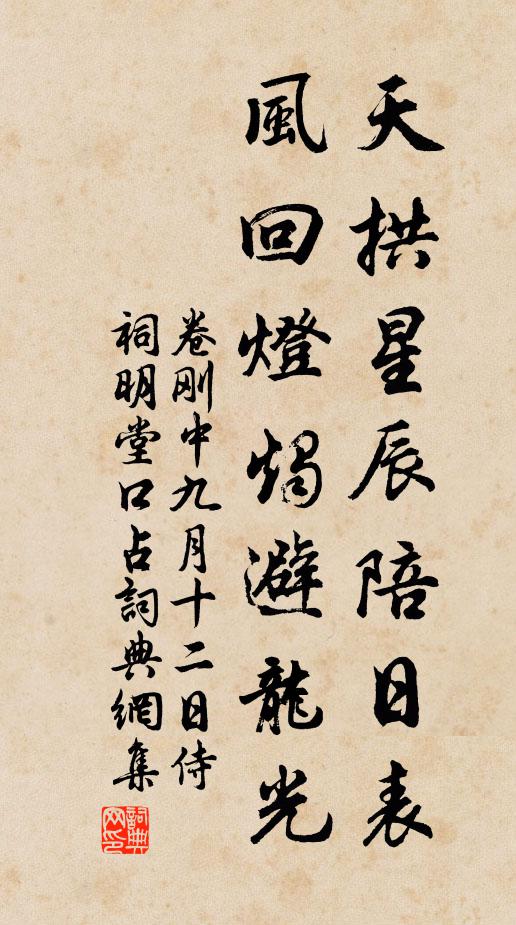 天拱星辰陪日表
風回燈燭避龍光
卷刚中九月十二日侍
祠明堂口占詞典網集
詞典网印